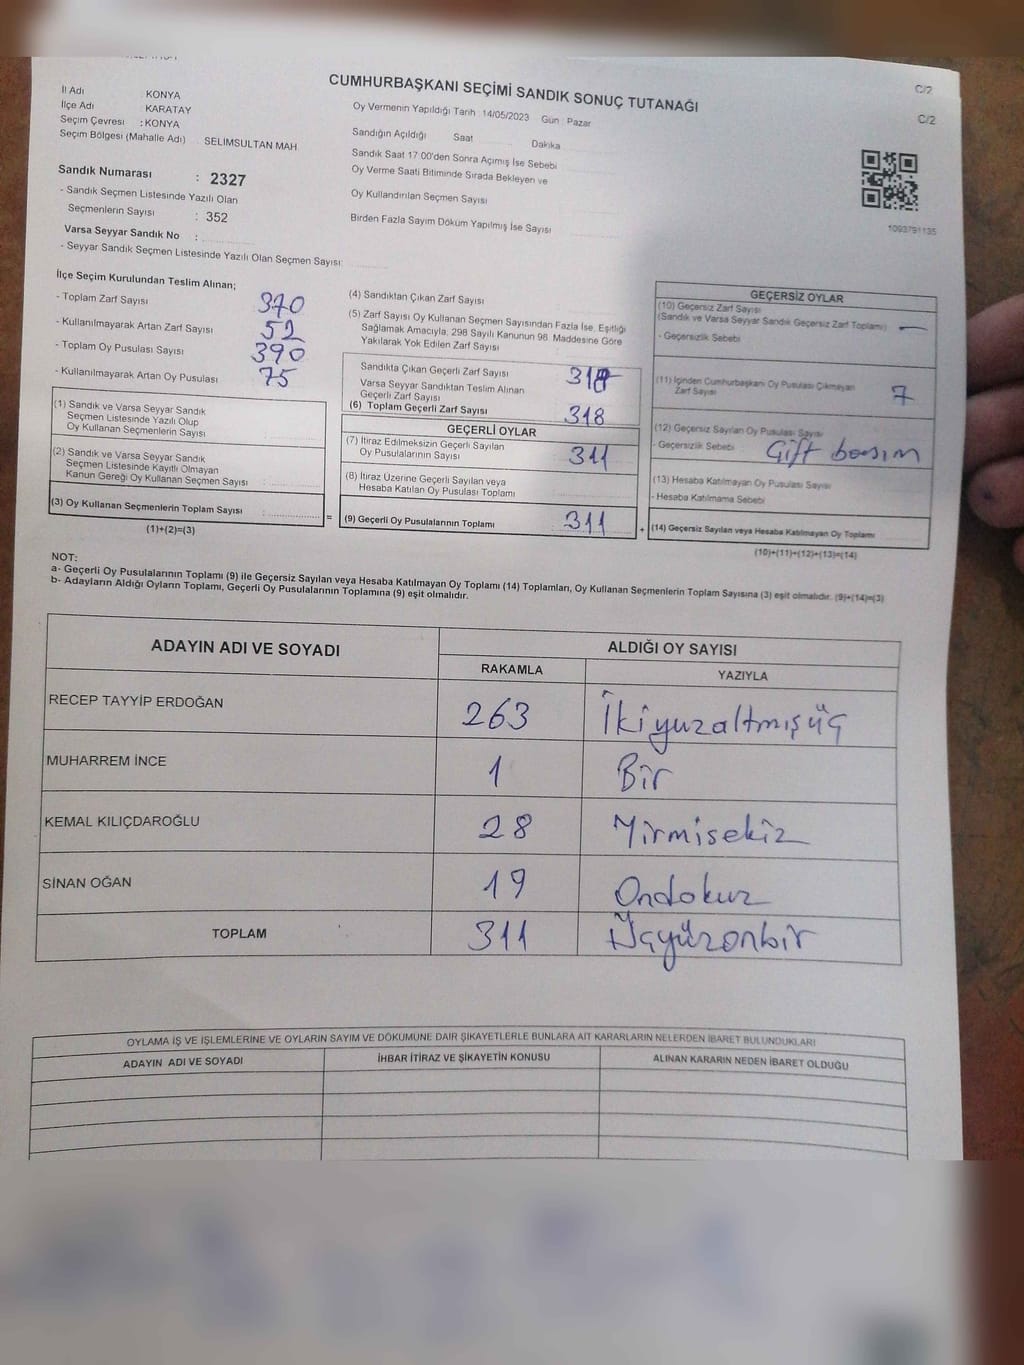 CUMHURBAŞKANI SEÇİMİ SANDIK SONUÇ TUTANAĞI
C/2
C/2
İl Adı KONYA
İlçe Adı KARATAY
Seçim Çevresi : KONYA
Seçim Bölgesi (Mahalle Adı) . SELİMSULTAN MAH
Sandık Numarası : 2327
- Sandık Seçmen Listesinde Yazılı Olan
Seçmenlerin Sayısı : 352
Varsa Seyyar Sandık No :
- Seyyar Sandık Seçmen Listesinde Yazılı Olan Seçmen Sayısı:
Oy Vermenin Yapıldığı Tarih :14/05/2023 Gün : Pazar
Sandığın Açıldığı Saat Dakika
Sandık Saat 17 00'den Sonra Açımış İse Sebebi
Oy Verme Saati Bitiminde Sırada Bekleyen ve
Oy Kullandırılan Seçmen Sayısı
Birden Fazla Sayım Döküm Yapılmış İse Sayısı
1093791135
İlçe Seçim Kurulundan Teslim Alınan;
- Toplam Zarf Sayısı 370
- Kullanılmayarak Artan Zarf Sayısı 52
- Toplam Oy Pusulası Sayısı 390
- Kullanılmayarak Artan Oy Pusulası 75
(1) Sandık ve Varsa Seyyar Sandık
Seçmen Listesinde Yazılı Olup
Oy Kullanan Seçmenlerin Sayısı
(2) Sandık ve Varsa Seyyar Sandık
Seçmen Listesinde Kayıtlı Olmayan
Kanun Gereği Oy Kullanan Seçmen Sayısı
(3) Oy Kullanan Seçmenlerin Toplam Sayısı
=
(1)+(2)=(3)
(4) Sandıktan Çıkan Zarf Sayısı
(5) Zarf Sayısı Oy Kullanan Seçmen Sayısından Fazla İse, Eşitliği
Sağlamak Amacıyla, 298 Sayılı Kanunun 98. Maddesine Göre
Yakılarak Yok Edilen Zarf Sayısı
Sandıkta Çıkan Geçerli Zarf Sayısı
Varsa Seyyar Sandıktan Teslim Alınan
Geçerli Zarf Sayısı
(6) Toplam Geçerli Zarf Sayısı 318
GEÇERLİ OYLAR
(7) İtiraz Edilmeksizin Geçerli Sayılan
Oy Pusulalarının Sayısı 311
(8) İtiraz Üzerine Geçerli Sayılan veya
Hesaba Katılan Oy Pusulası Toplamı
(9) Geçerli Oy Pusulalarının Toplamı 311
+
GEÇERSİZ OYLAR
(10) Geçersiz Zarf Sayısı
(Sandık ve Varsa Seyyar Sandık Geçersiz Zarf Toplamı) —
- Geçersizlik Sebebi
(11) İçinden Cumhurbaşkanı Oy Pusulası Çıkmayan
Zarf Sayısı 7
(12) Geçersiz Sayılan Oy Pusulası Sayısı
- Geçersizlik Sebebi Çift basım
(13) Hesaba Katılmayan Oy Pusulası Sayısı
- Hesaba Katılmama Sebebi
(14) Geçersiz Sayılan veya Hesaba Katılmayan Oy Toplamı
(10)+(11)+(12)+(13)=(14)
NOT:
a- Geçerli Oy Pusulalarının Toplamı (9) ile Geçersiz Sayılan veya Hesaba Katılmayan Oy Toplamı (14) Toplamları, Oy Kullanan Seçmenlerin Toplam Sayısına (3) eşit olmalıdır. (9)+(14)=(3)
b- Adayların Aldığı Oyların Toplamı, Geçerli Oy Pusulalarının Toplamına (9) eşit olmalıdır.
ADAYIN ADI VE SOYADI ALDIĞI OY SAYISI
RAKAMLA YAZIYLA
RECEP TAYYİP ERDOĞAN 263 İkiyuzaltmışüç
MUHARREM İNCE 1 Bir
KEMAL KILIÇDAROĞLU 28 Yirmisekiz
SİNAN OĞAN 19 Ondokuz
TOPLAM 311 Üçyüzonbir
OYLAMA İŞ VE İŞLEMLERİNE VE OYLARIN SAYIM VE DÖKÜMÜNE DAİR ŞİKAYETLERLE BUNLARA AİT KARARLARIN NELERDEN İBARET BULUNDUKLARI
ADAYIN ADI VE SOYADI İHBAR İTİRAZ VE ŞİKAYETİN KONUSU ALINAN KARARIN NEDEN İBARET OLDUĞU